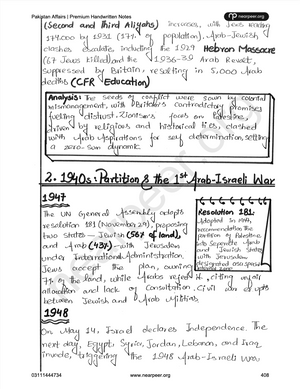 Pakistan Affairs | Premium Handwritten Notes
nearpeer.org
(Second and Third Aliyahs) increases, with Jews reaching
174,000 by 1931 (17% of population). Arab-Jewish
clashes escalate including the 1929 Hebron Massacre
(67 Jews killed) and the 1936-39 Arab Revolt,
suppressed by Britain, resulting in 5,000 Arab
deaths (CFR Education)
Analysis: The seeds of conflict were sown by colonial
mismanagement, with Britain's contradictory promises
fueling distrust. Zionism's focus on Palestine,
driven by religious and historical ties, clashed
with Arab aspirations for self determination, setting
a zero-sum dynamic.
2. 1940s: Partition & the 1st Arab-Israeli War
1947
The UN General Assembly adopts
resolution 181 (November 29), proposing
two states — Jewish (56% of land),
and Arab (43%) with Jerusalem
under International Administration.
Jews accept the plan, owning
7% of the land, while Arabs reject it, citing unfair
allocation and lack of consultation. Civil war erupts
between Jewish and Arab militias.
Resolution 181:
Adopted in 1947,
recommendation the
partition of Palestine
into separate Arab
and Jewish States
with Jerusalem
designated as a special
1948
On May 14, Israel declares Independence. The
next day, Egypt, Syria, Jordan, Lebanon, and Iraq
invade, triggering the 1948 Arab-Israeli War
03111444734
www.nearpeer.org
408